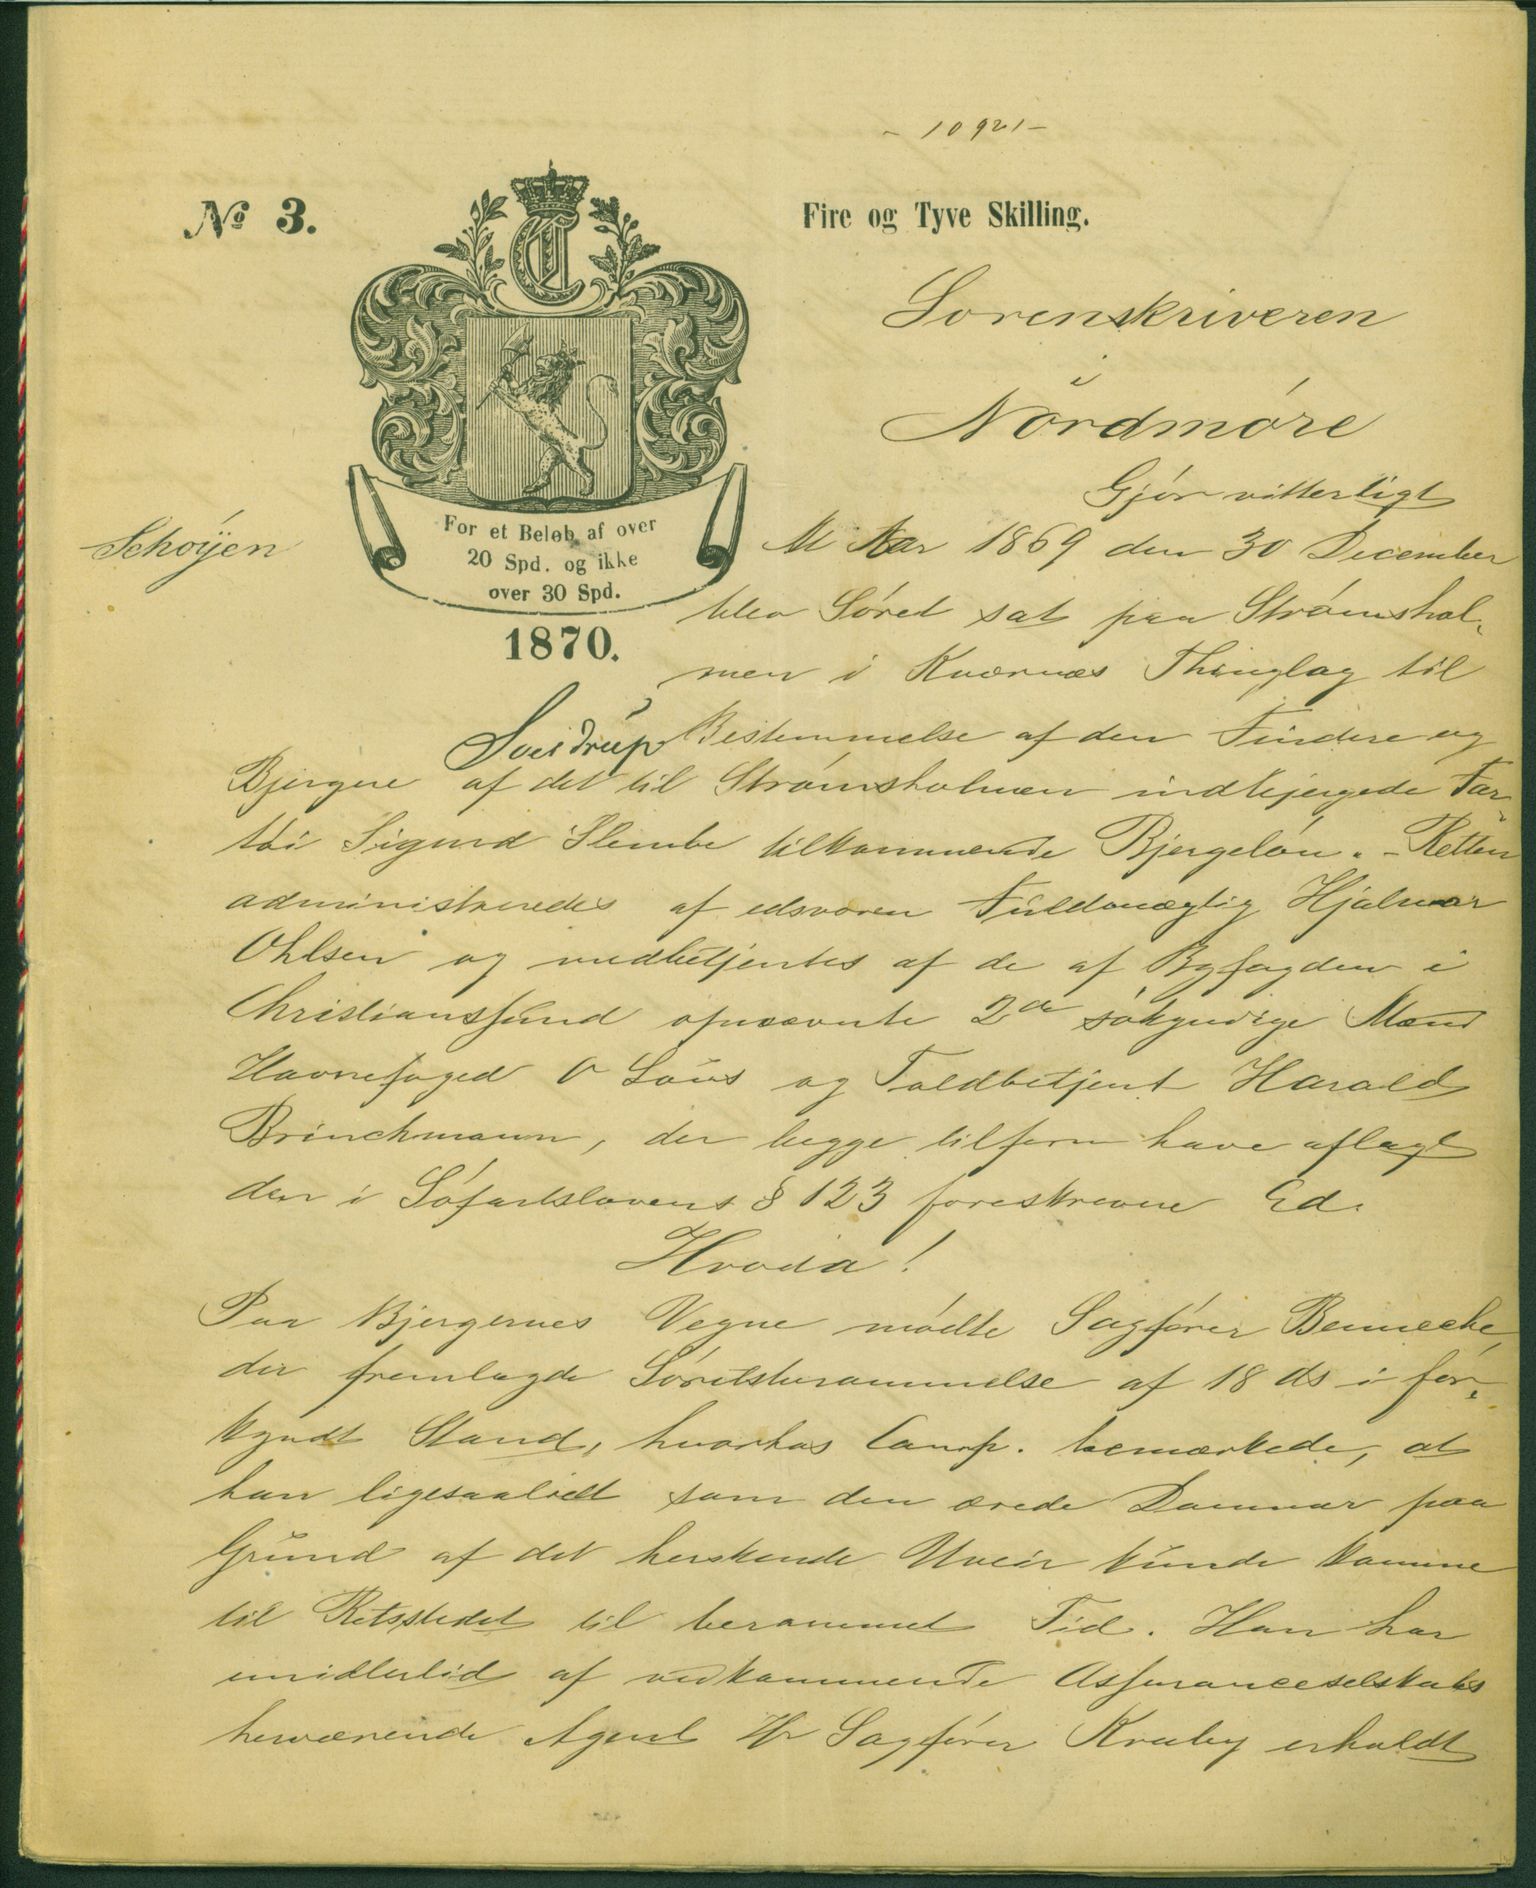 - 10921 -
No 3.
Fire og Tyve Skilling.
Sorenskriveren
i
Nordmøre
Gjør vitterligt
For et Beløb af over
20 Spd. og ikke
over 30 Spd.
1870.
Schøyen
Sverdrup
At Aar 1869 den 30 December
blev Søret sat paa Strømshol-
men i Kvernæs Thinglag til
Bestemmelse af den Findere og
Bjergere af det til Strømsholmen indbjergede Far-
tøi Sigurd Slembe tilkommende Bjergeløn. - Retten
administreredes af edsvoren Fuldmægtig Hjalmar
Ohlsen og medbetjentes af de af Byfogden i
Christianssund opnævnte 2de søkyndige Mænd
Havnefoged O Lous og Toldbetjent Harald
Brinchmann, der begge tilforn have aflagt
den i Søfartslovens § 123 foreskrevne Ed.
Hvoda!
Paa Bjergernes Vegne mødte Sagfører Bennecke,
der fremlagde Søretsberammelse af 18 ds i for-
kyndt Stand, hvorhos Comp. bemærkede, at
han ligesaalidt som den ærede Dommer paa
Grund af det herskende Uveir kunde komme
til Retsstedet til berammet Tid. Han har
imidlertid af vedkommende Assuranceselskabs
herværende Agent Hr Sagfører Kraby erholdt